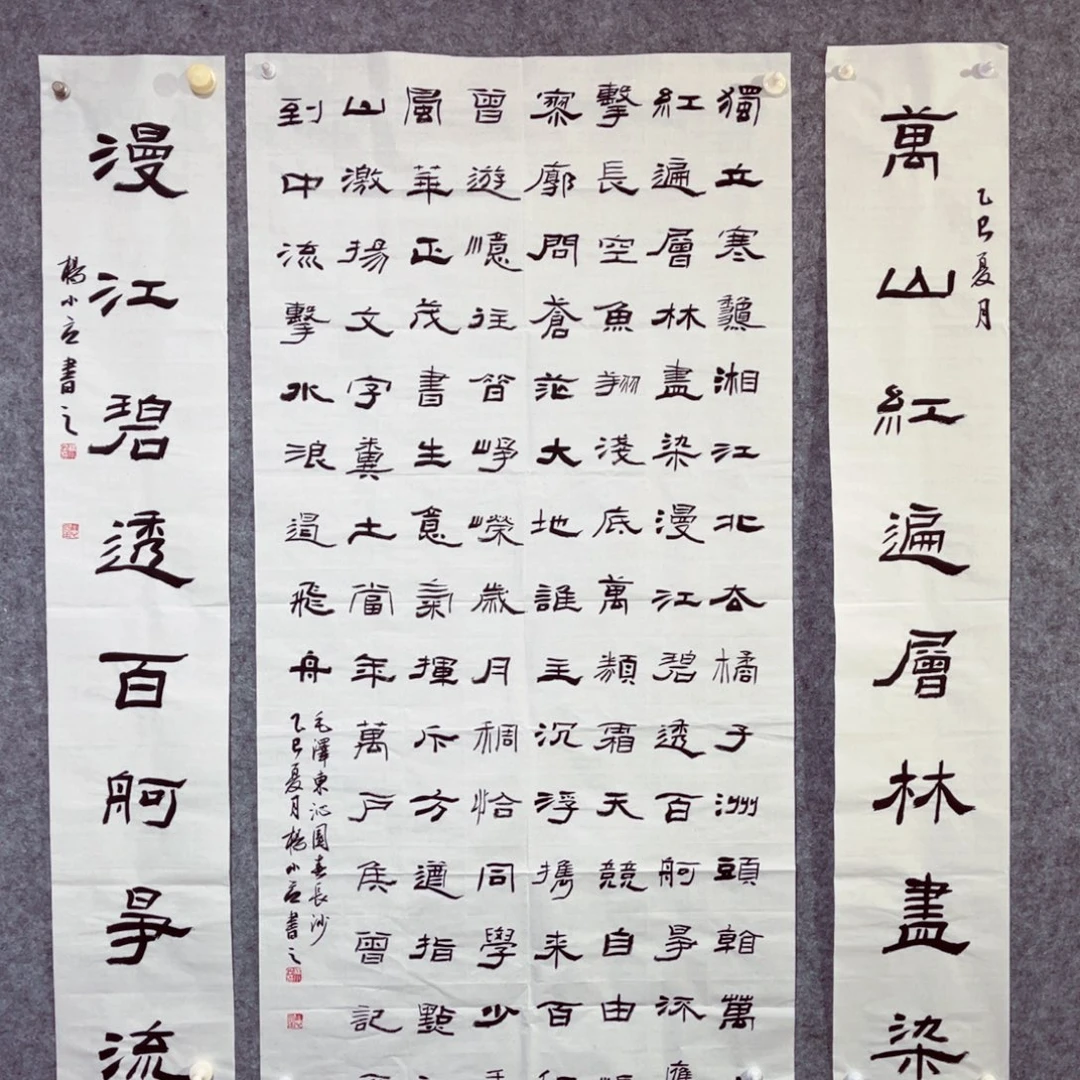 萬山紅遍層林盡染
乙巳夏月
獨立寒龝湘江北去橘子洲頭看萬
紅遍層林盡染漫江碧透百舸爭流鷹
擊長空魚翔淺底萬類霜天競自由悵
寥廓問蒼茫大地誰主沉浮攜来百侣
曾遊憶往昔崢嶸歲月稠恰同學少年
風華正茂書生意氣揮斥方遒指點江
山激揚文字糞土當年萬戶侯曾記否
到中流擊水浪遏飛舟
毛澤東沁園春長沙
乙巳夏月楊小書之
漫江碧透百舸爭流
楊小書之